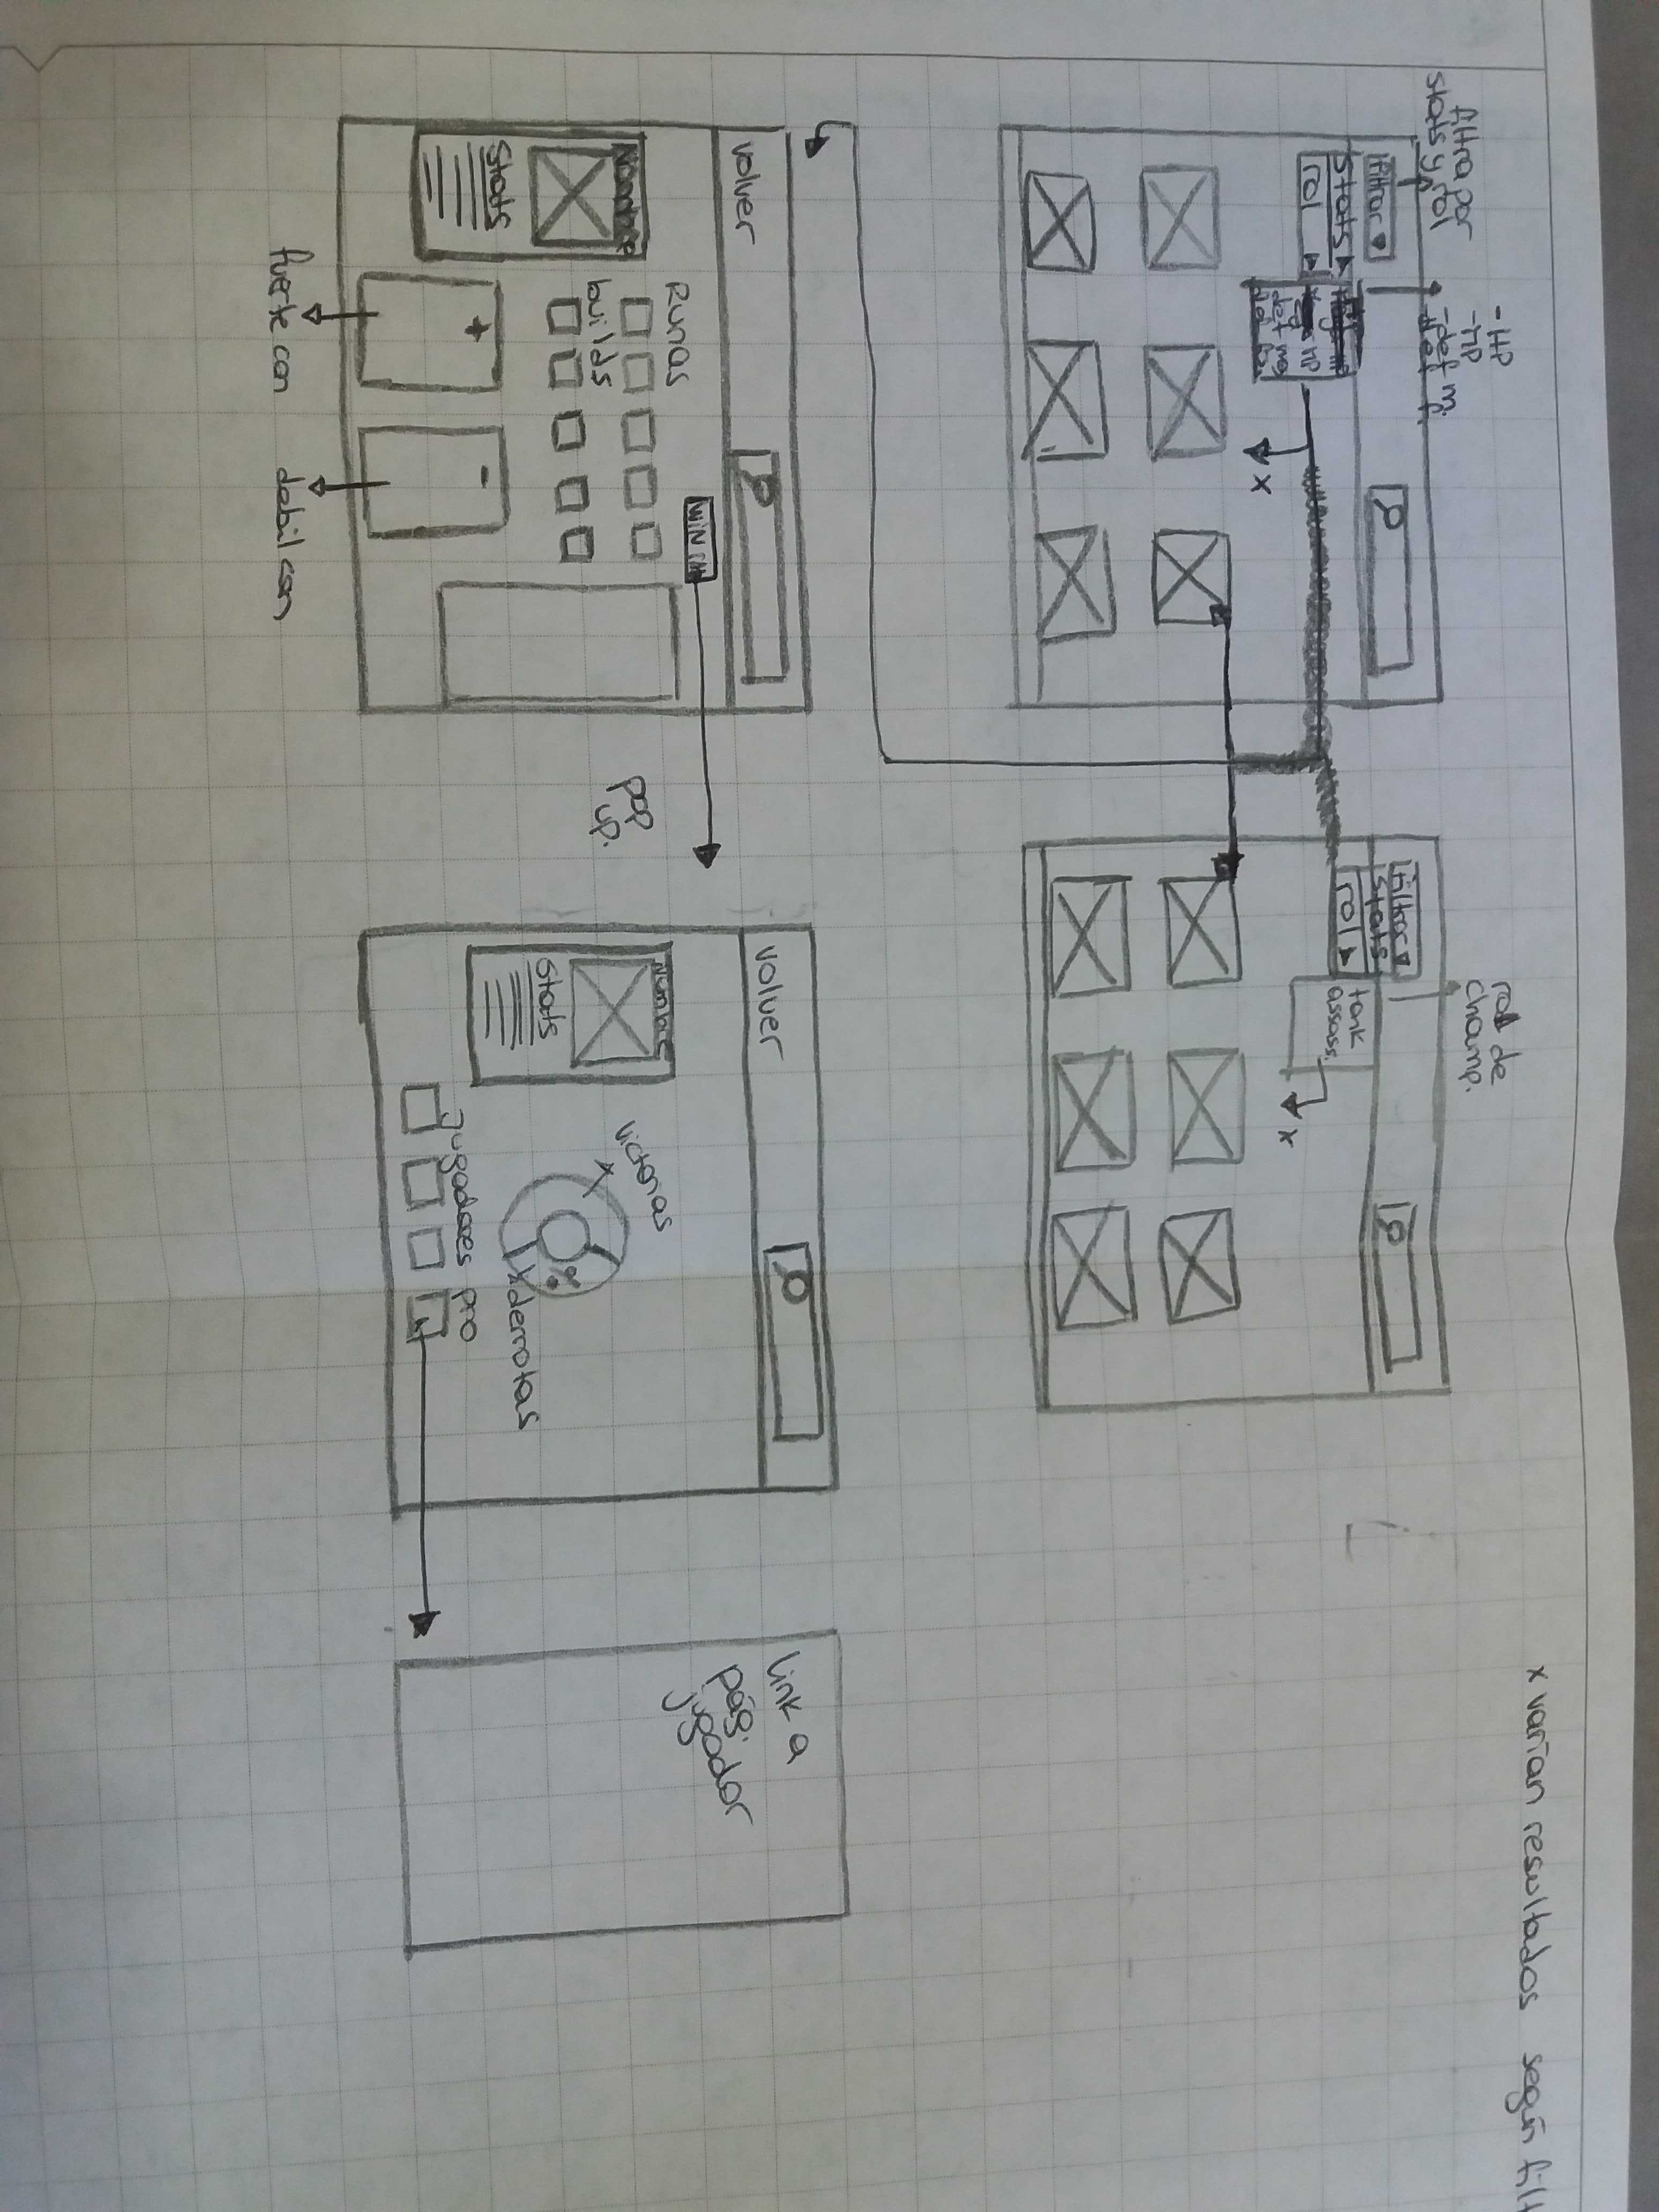 x varían resultados según filt
filtra por
stats y rol
- HP
- MP
- def m.
- def f.
filtrar
stats
rol
MP
def mg
def fs.
x
rol de
champ.
filtrar
stats
rol
tank
assass.
x
volver
WIN
Runas
Nombre
builds
stats
+
-
fuerte con
debil con
pop
up.
volver
Nombre
stats
victorias
%
derrotas
jugadores pro
Link a
pág.
jugador